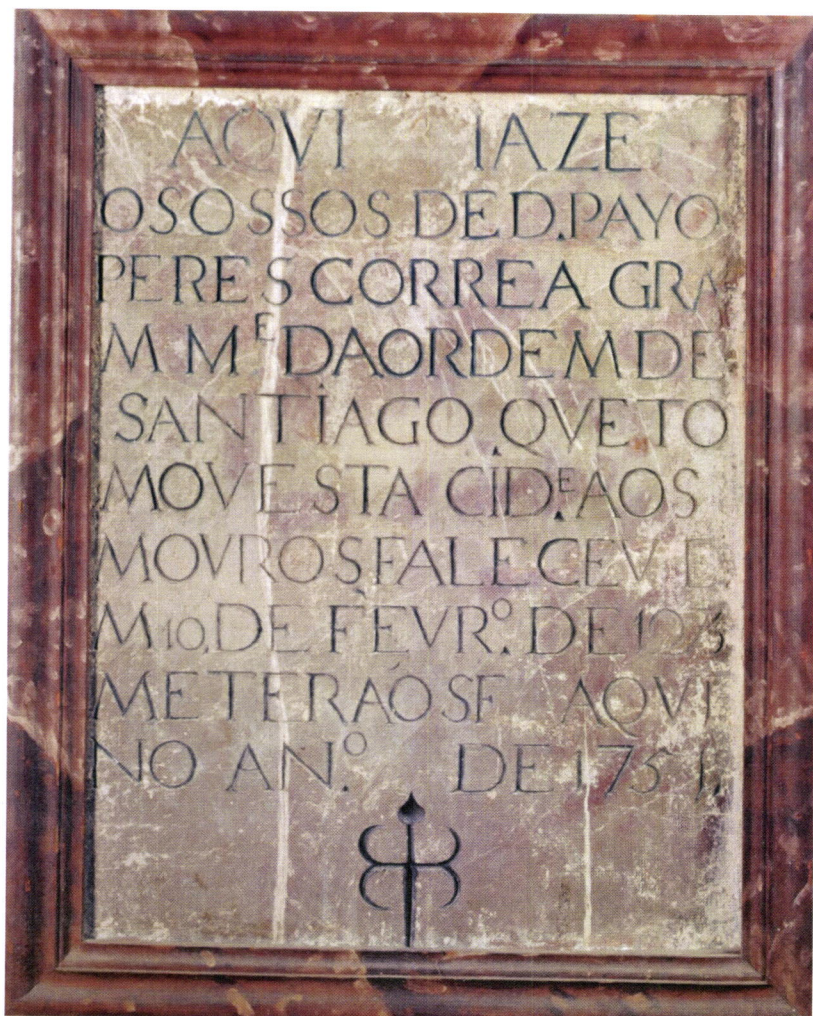 AQVI IAZE
OSOSSOS DED.PAYO
PERES CORREA GRA
M Mᴱ DAORDEM DE
SANTIAGO QVETO
MOVE STA CIDᴱ.AOS
MOVROSFALECEV E
M 10.DE FEVRº. DE
METERAÓSE AQVI
NO ANº. DE 1751.